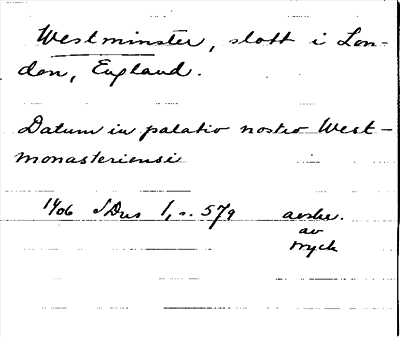 Westminster, slott i Lon-
don, England.
Datum in palatio nostro West-
monasteriensi
1406 SDns 1, s. 579 avskr.
av
tryck